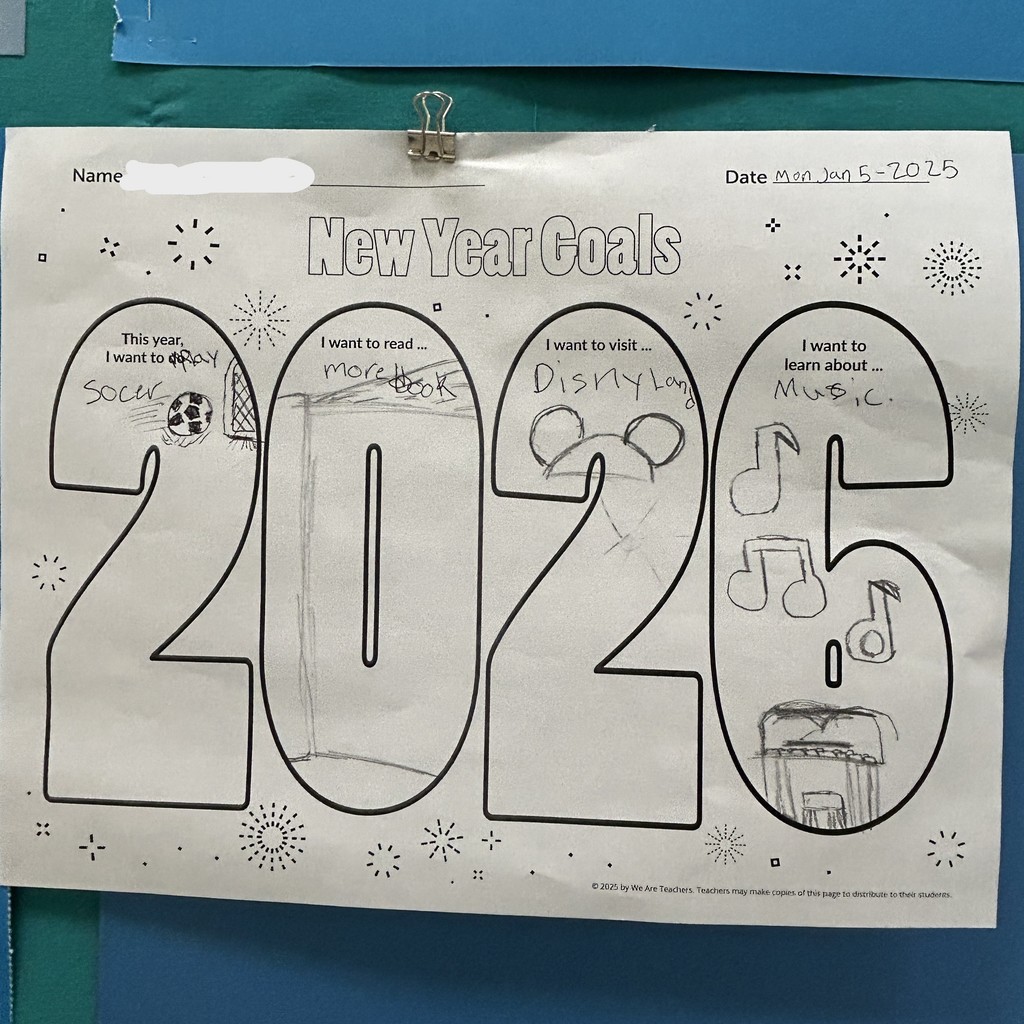 Name
Date Mon Jan 5-2025
New Year Goals
This year,
I want to play
socer
I want to read ...
more book
I want to visit ...
DisnyLand
I want to
learn about ...
Music.
2026
© 2025 by We Are Teachers. Teachers may make copies of this page to distribute to their students.